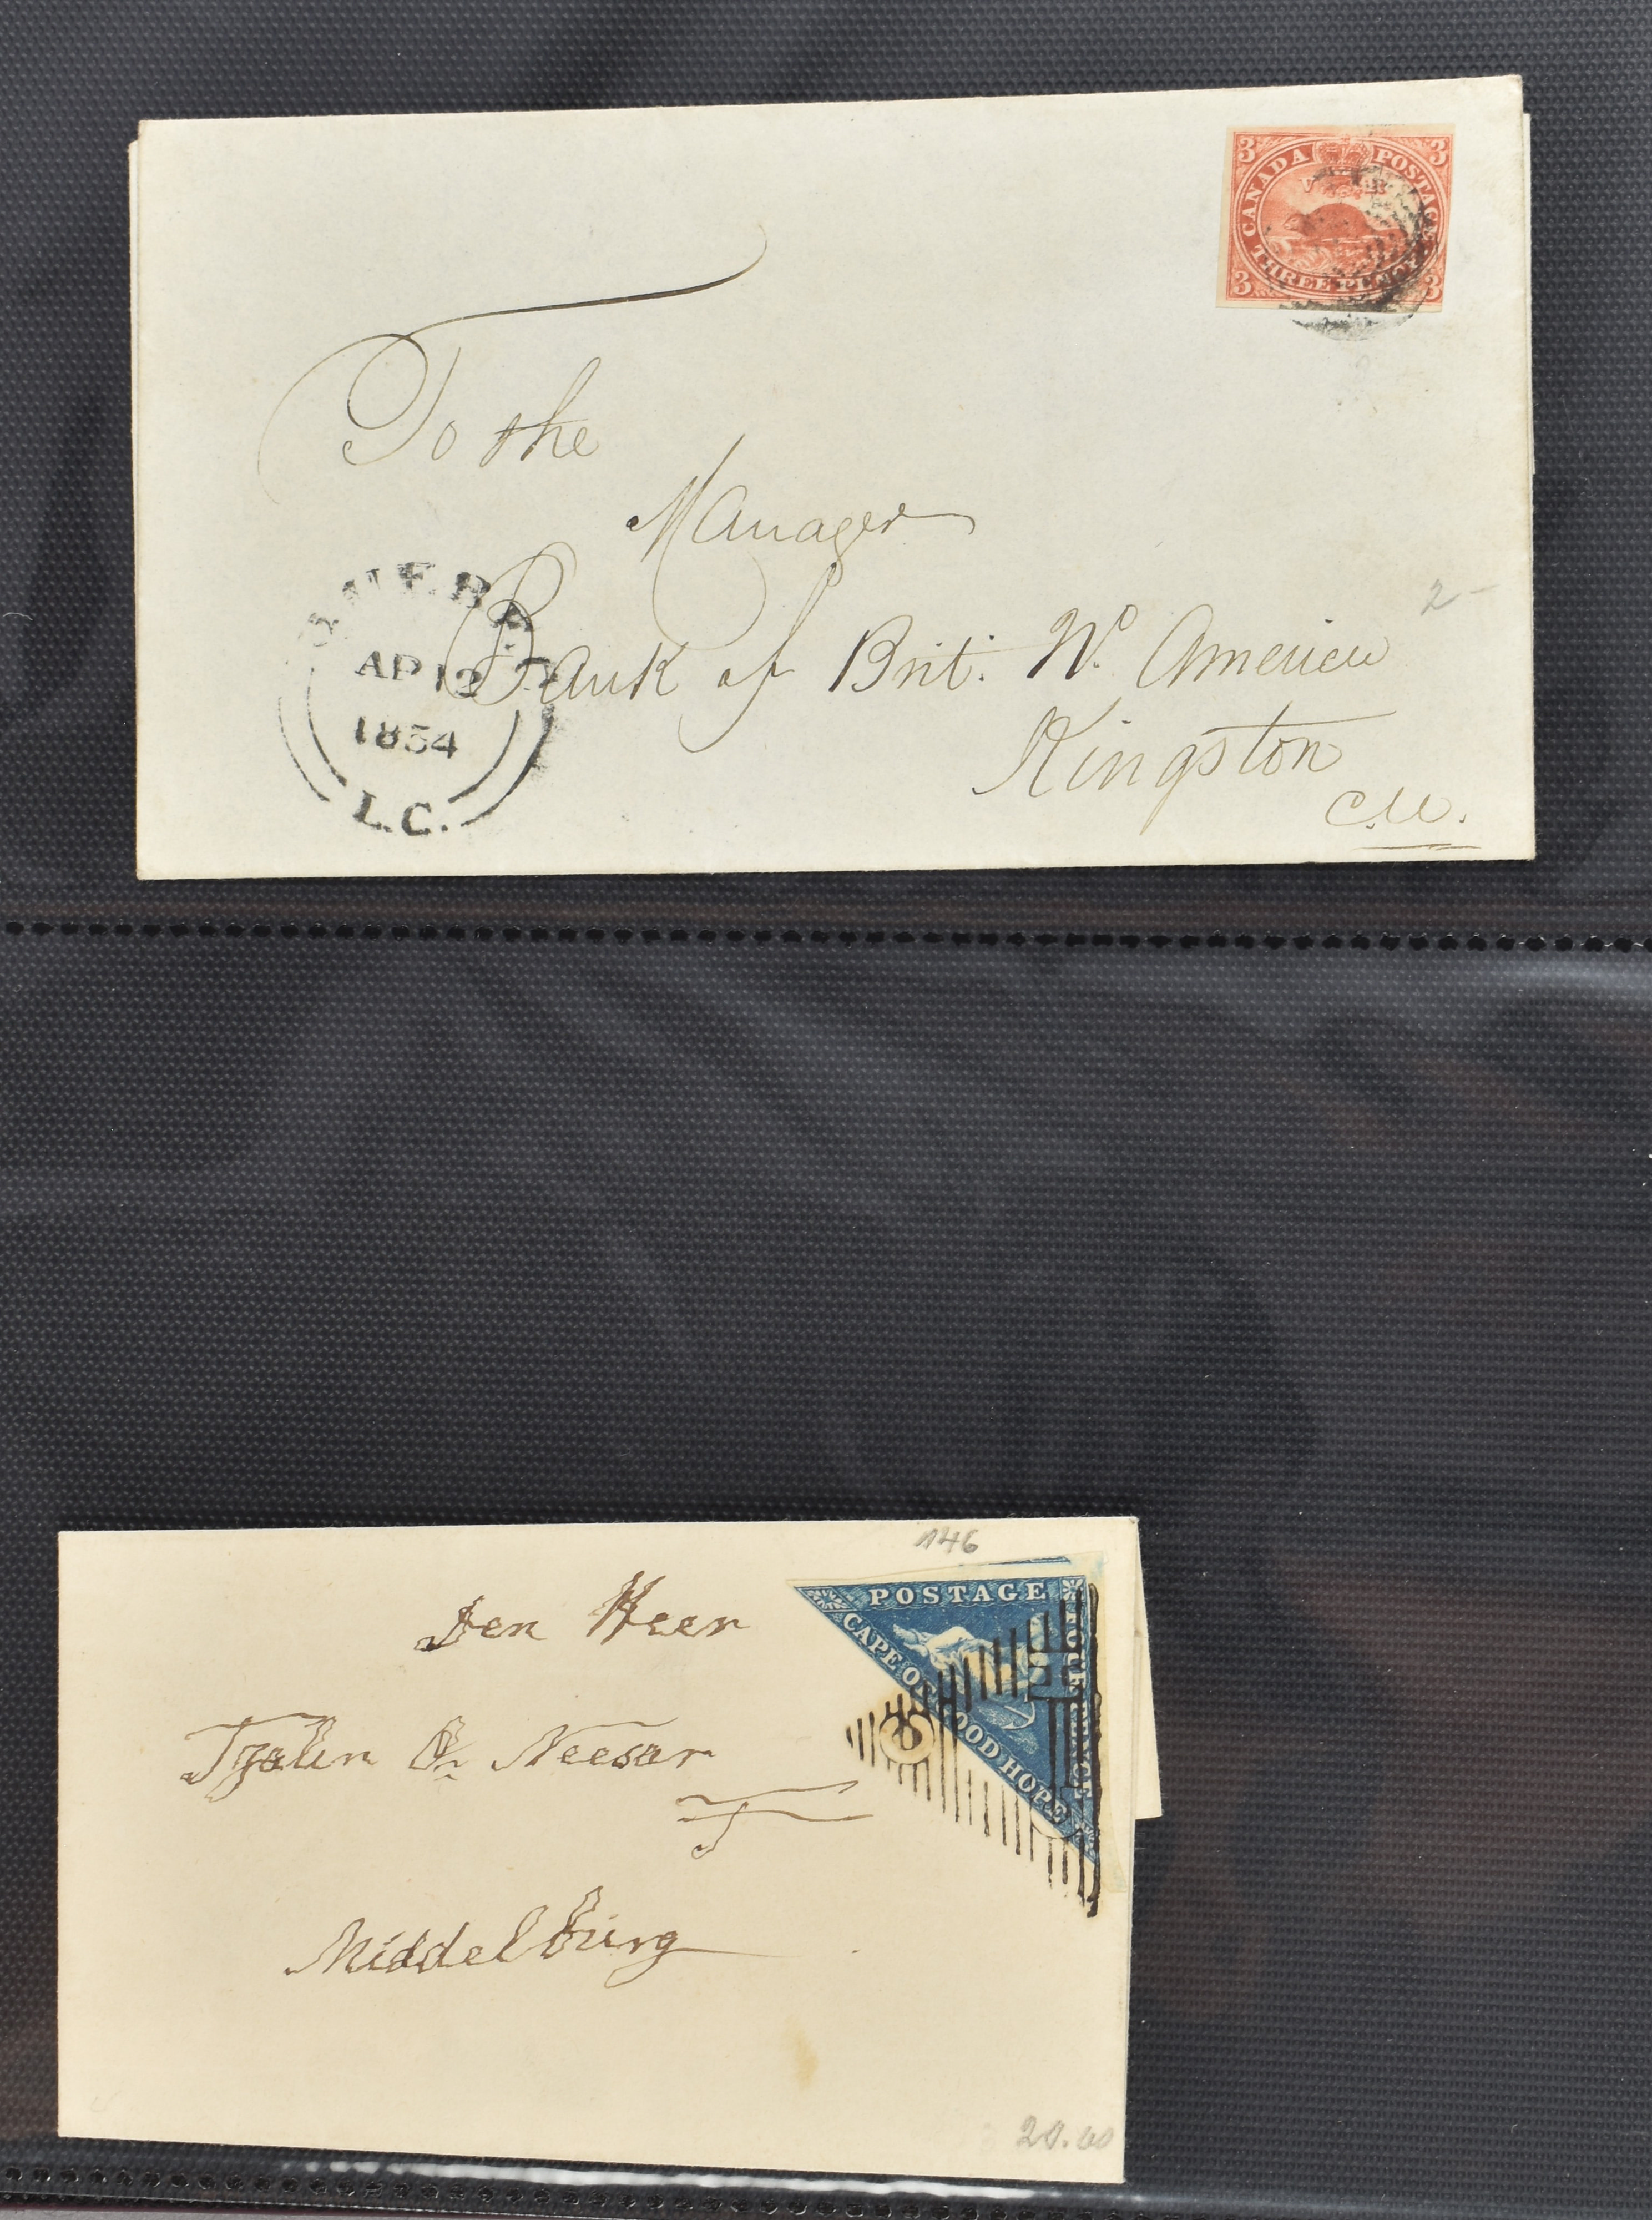 3 CANADA POSTAGE 3
V R
3 THREE PENCE 3
To the
Manager
Bank of Brit. No. America
Kingston
C.W.
2-
QUEBEC
AP 12
1854
L.C.
146
POSTAGE
CAPE OF GOOD HOPE
FOUR PENCE
Den Heer
Middelburg
20.00